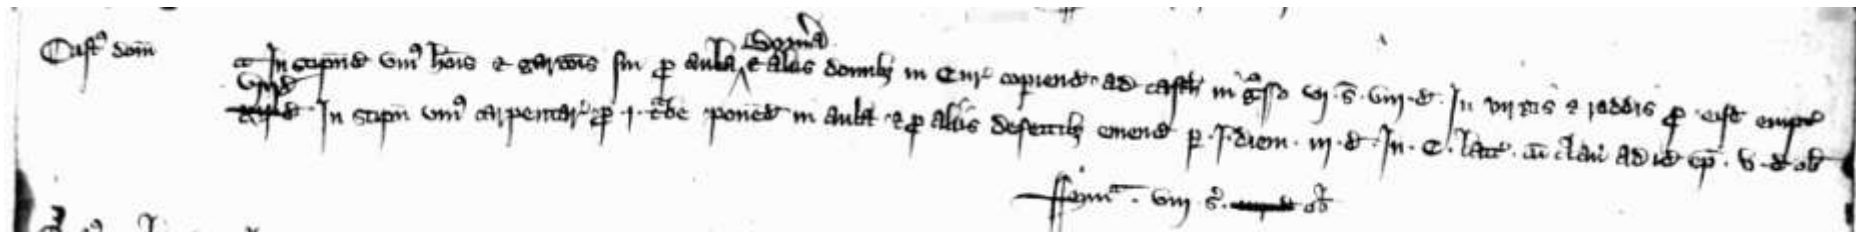 Cust' dom'
In stipend' uni' ho'is & garc'onis sui p' aula & aliis domib3 in Cur' copiend' ad tasch' in g'sso vj . s' . viij . d' . In virgis & raddis p' eisd' empt'
In stipn' uni' carpentar' p' . j . t'be ponend' in aula & p' aliis defectib3 emend' p' . j . diem . iij . d' . In . C . latt' . cu' clau' ad id' ep' . v . d' ob'
Sum'a . viij s' . ob'